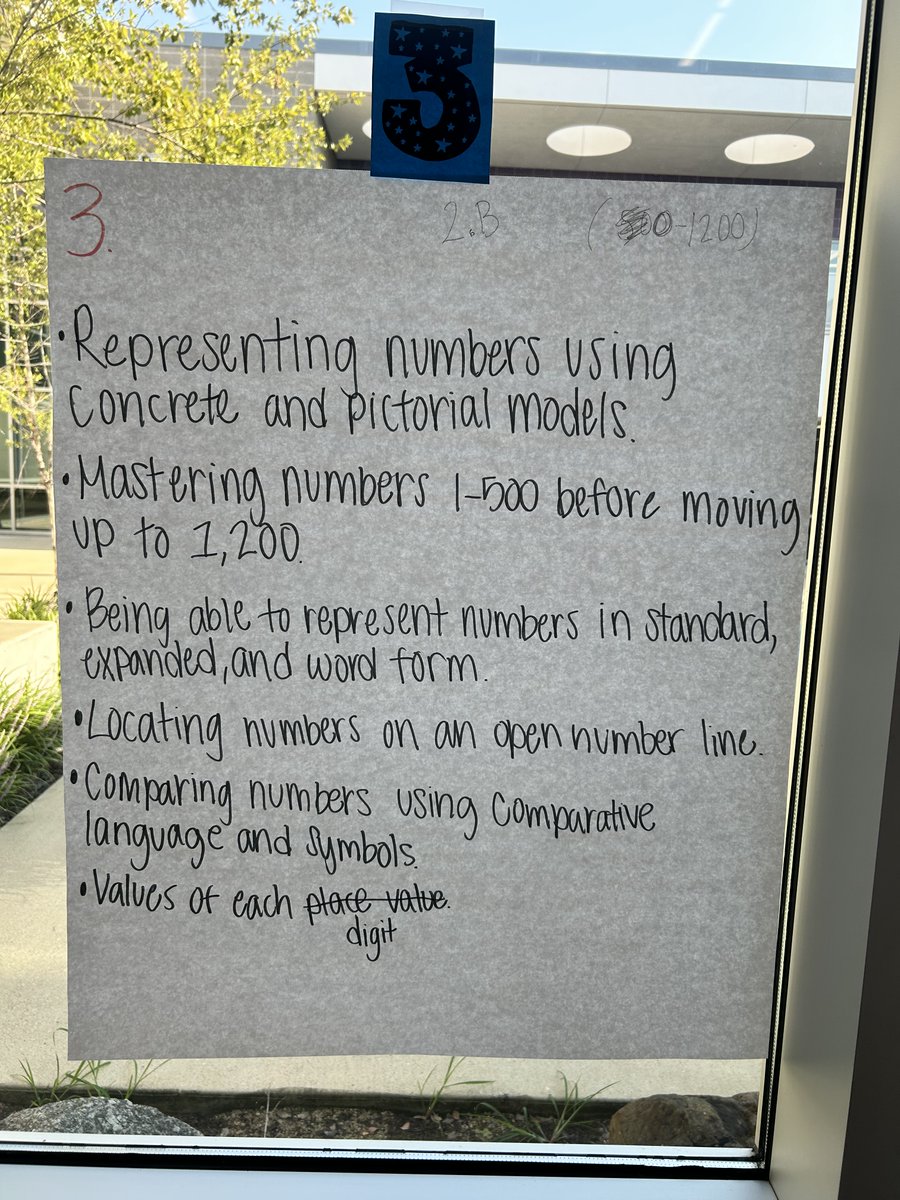 3
3. 2.B ( 0-1200)
• Representing numbers using
concrete and pictorial models.
• Mastering numbers 1-500 before moving
up to 1,200.
• Being able to represent numbers in standard,
expanded, and word form.
• Locating numbers on an open number line.
• Comparing numbers using comparative
language and symbols.
• Values of each place value.
digit